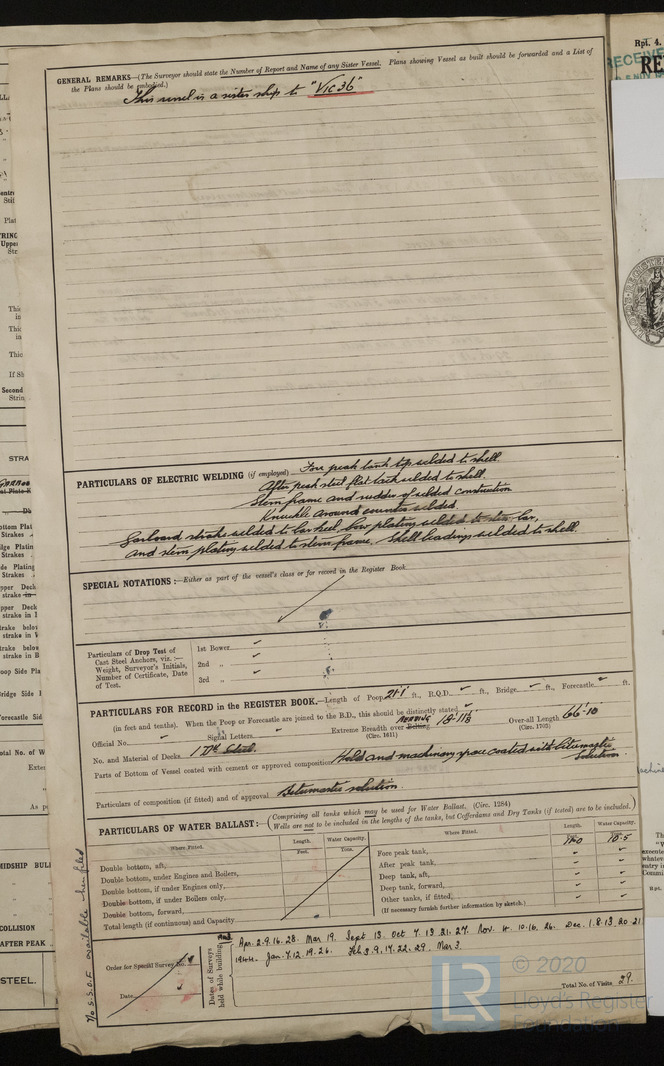 GENERAL REMARKS—(The Surveyor should state the Number of Report and Name of any Sister Vessel. Plans showing Vessel as built should be forwarded and a List of
the Plans should be embodied.)
This vessel is a sister ship to "VIC 36"
PARTICULARS OF ELECTRIC WELDING (if employed) Fore peak tank top welded to shell.
After peak steel flat welded to shell.
Stern frame and rudder of welded construction
Knuckle around counter welded.
Garboard strake welded to bar keel, bow plating welded to stem bar,
and stern plating welded to stern frame. Shell welded to shell.
SPECIAL NOTATIONS:—Either as part of the vessel's class or for record in the Register Book
Particulars of Drop Test of
Cast Steel Anchors, viz.:—
Weight, Surveyor's Initials,
Number of Certificate, Date
of Test.
1st Bower
2nd „
3rd „
PARTICULARS FOR RECORD in the REGISTER BOOK.—Length of Poop 21·1 ft., R.Q.D. ft., Bridge ft., Forecastle ft.
(in feet and tenths). When the Poop or Forecastle are joined to the B.D., this should be distinctly stated
Official No. Signal Letters Extreme Breadth over Belting 18'-11½ Over-all Length 66'-10
(Circ. 1611) (Circ. 1703)
No. and Material of Decks 1 Dk Steel.
Parts of Bottom of Vessel coated with cement or approved composition Hold and machinery space coated with bitumastic
solution.
Particulars of composition (if fitted) and of approval Bitumastic solution.
PARTICULARS OF WATER BALLAST:—(Comprising all tanks which may be used for Water Ballast. (Circ. 1284)
Wells are not to be included in the lengths of the tanks, but Cofferdams and Dry Tanks (if tested) are to be included.)
Where Fitted. Length. Water Capacity.
Feet. Tons.
Double bottom, aft,
Double bottom, under Engines and Boilers,
Double bottom, if under Engines only,
Double bottom, if under Boilers only,
Double bottom, forward,
Total length (if continuous) and Capacity
Where Fitted. Length. Water Capacity.
Fore peak tank, 11·0 10·5
After peak tank,
Deep tank, aft,
Deep tank, forward,
Other tanks, if fitted,
(If necessary furnish further information by sketch.)
No S.S.O.F. available when filed
Order for Special Survey No.
Date
Dates of Surveys
held while building
Apr. 2. 9. 16. 28. Mar 19. Sept 13. Oct 7. 13. 21. 27. Nov. 4. 10. 16. 26. Dec. 1. 8. 13. 20. 21.
1944. Jan. 7. 12. 19. 26. Feb 3. 9. 17. 22. 29. Mar 3.
Total No. of Visits 29.
© 2020
LR
Lloyd's Register
Foundation
Rpt. 4.